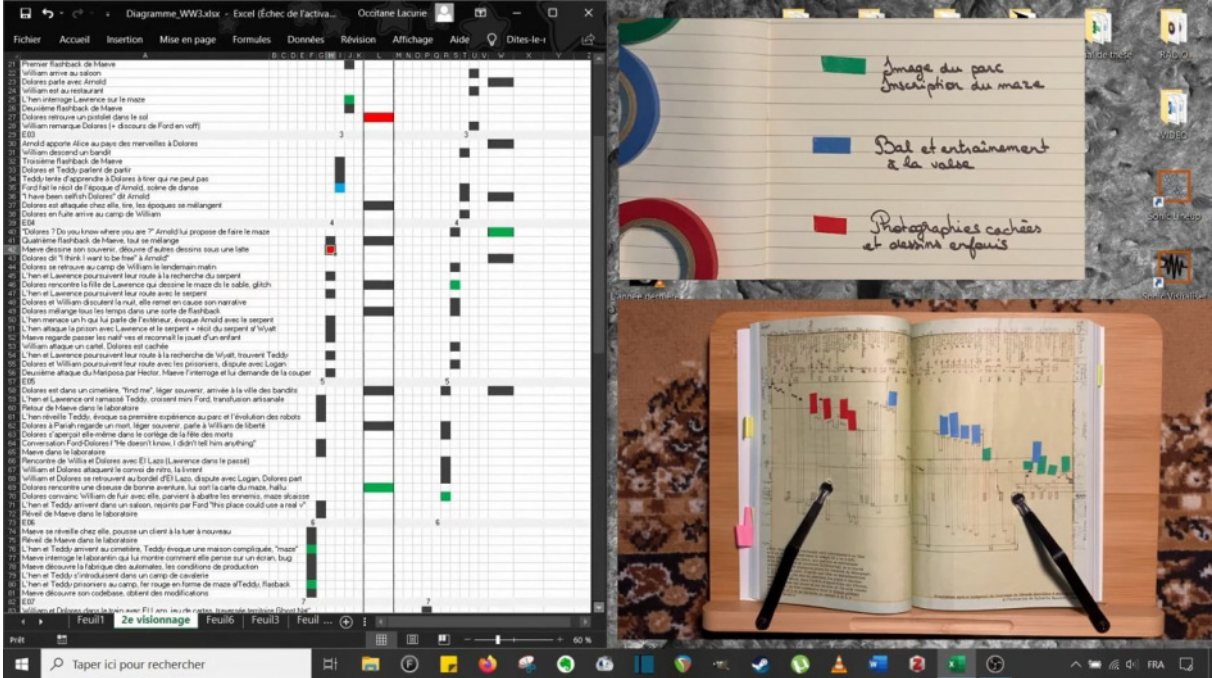 Diagramme_WW3.xlsx - Excel (Échec de l'activa...
Occitane Lacurie
Fichier Accueil Insertion Mise en page Formules Données Révision Affichage Aide Dites-le-
21 Premier flashback de Maeve
22 William arrive au saloon
23 Dolores parle avec Arnold
24 William est au restaurant
25 L'hen interroge Lawrence sur le maze
26 Deuxième flashback de Maeve
27 Dolores retrouve un pistolet dans le sol
28 William remarque Dolores (+ discours de Ford en voff)
29 E03 3 3
30 Arnold apporte Alice au pays des merveilles à Dolores
31 William descend un bandit
32 Troisième flashback de Maeve
33 Dolores et Teddy parlent de partir
34 Teddy tente d'apprendre à Dolores à tirer qui ne peut pas
35 Ford fait le récit de l'époque d'Arnold, scène de danse
36 "I have been selfish Dolores" dit Arnold
37 Dolores est attaquée chez elle, tire, les époques se mélangent
38 Dolores en fuite arrive au camp de William
39 E04 4 4
40 "Dolores ? Do you know where you are ?" Arnold lui propose de faire le maze
41 Quatrième flashback de Maeve, tout se mélange
42 Maeve dessine son souvenir, découvre d'autres dessins sous une latte
43 Dolores dit "I think I want to be free" à Arnold
44 Dolores se retrouve au camp de William le lendemain matin
45 L'hen et Lawrence poursuivent leur route à la recherche du serpent
46 Dolores rencontre la fille de Lawrence qui dessine le maze ds le sable, glitch
47 L'hen et Lawrence poursuivent leur route avec le serpent
48 Dolores et William discutent la nuit, elle remet en cause son narrative
49 Dolores mélange tous les temps dans une sorte de flashback
50 L'hen menace un h qui lui parle de l'extérieur, évoque Arnold avec le serpent
51 L'hen attaque la prison avec Lawrence et le serpent + récit du serpent s/ Wyatt
52 Maeve regarde passer les natif·ves et reconnaît le jouet d'un enfant
53 William attaque un cartel, Dolores est cachée
54 L'hen et Lawrence poursuivent leur route à la recherche de Wyatt, trouvent Teddy
55 Dolores et William poursuivent leur route avec les prisonniers, dispute avec Logan
56 Deuxième attaque du Mariposa par Hector, Maeve l'interroge et lui demande de la couper
57 E05 5 5
58 Dolores est dans un cimetière, "find me", léger souvenir, arrivée à la ville des bandits
59 L'hen et Lawrence ont ramassé Teddy, croisent mini Ford, transfusion artisanale
60 Retour de Maeve dans le laboratoire
61 L'hen réveille Teddy, évoque sa première expérience au parc et l'évolution des robots
62 Dolores à Pariah regarde un mort, léger souvenir, parle à William de liberté
63 Dolores s'aperçoit elle-même dans le cortège de la fête des morts
64 Conversation Ford-Dolores f "He doesn't know, I didn't tell him anything"
65 Maeve dans le laboratoire
66 Rencontre de Willia et Dolores avec El Lazo (Lawrence dans le passé)
67 William et Dolores attaquent le convoi de nitro, la livrent
68 William et Dolores se retrouvent au bordel d'El Lazo, dispute avec Logan, Dolores part
69 Dolores rencontre une diseuse de bonne aventure, lui sort la carte du maze, hallu
70 Dolores convainc William de fuir avec elle, parvient à abattre les ennemis, maze s/caisse
71 L'hen et Teddy arrivent dans un saloon, rejoints par Ford "this place could use a real v"
72 Réveil de Maeve dans le laboratoire
73 E06 6 6
74 Maeve se réveille chez elle, pousse un client à la tuer à nouveau
75 Réveil de Maeve dans le laboratoire
76 L'hen et Teddy arrivent au cimetière, Teddy évoque une maison compliquée, "maze"
77 Maeve interroge le laborantin qui lui montre comment elle pense sur un écran, bug
78 Maeve découvre la fabrique des automates, les conditions de production
79 L'hen et Teddy s'introduisent dans un camp de cavalerie
80 L'hen et Teddy prisoniers au camp, fer rouge en forme de maze s/Teddy, flasback
81 Maeve découvre son codebase, obtient des modifications
82 E07 7 7
Feuil1 2e visionnage Feuil6 Feuil3 Feuil ...
Prêt 60 %
Image du parc
Inscription du maze
Bal et entraînement
à la valse
Photographies cachées
et dessins enfouis
RADIO...
VIDEO
Sonic Lineup
Sonic Visualiser
Taper ici pour rechercher
FRA